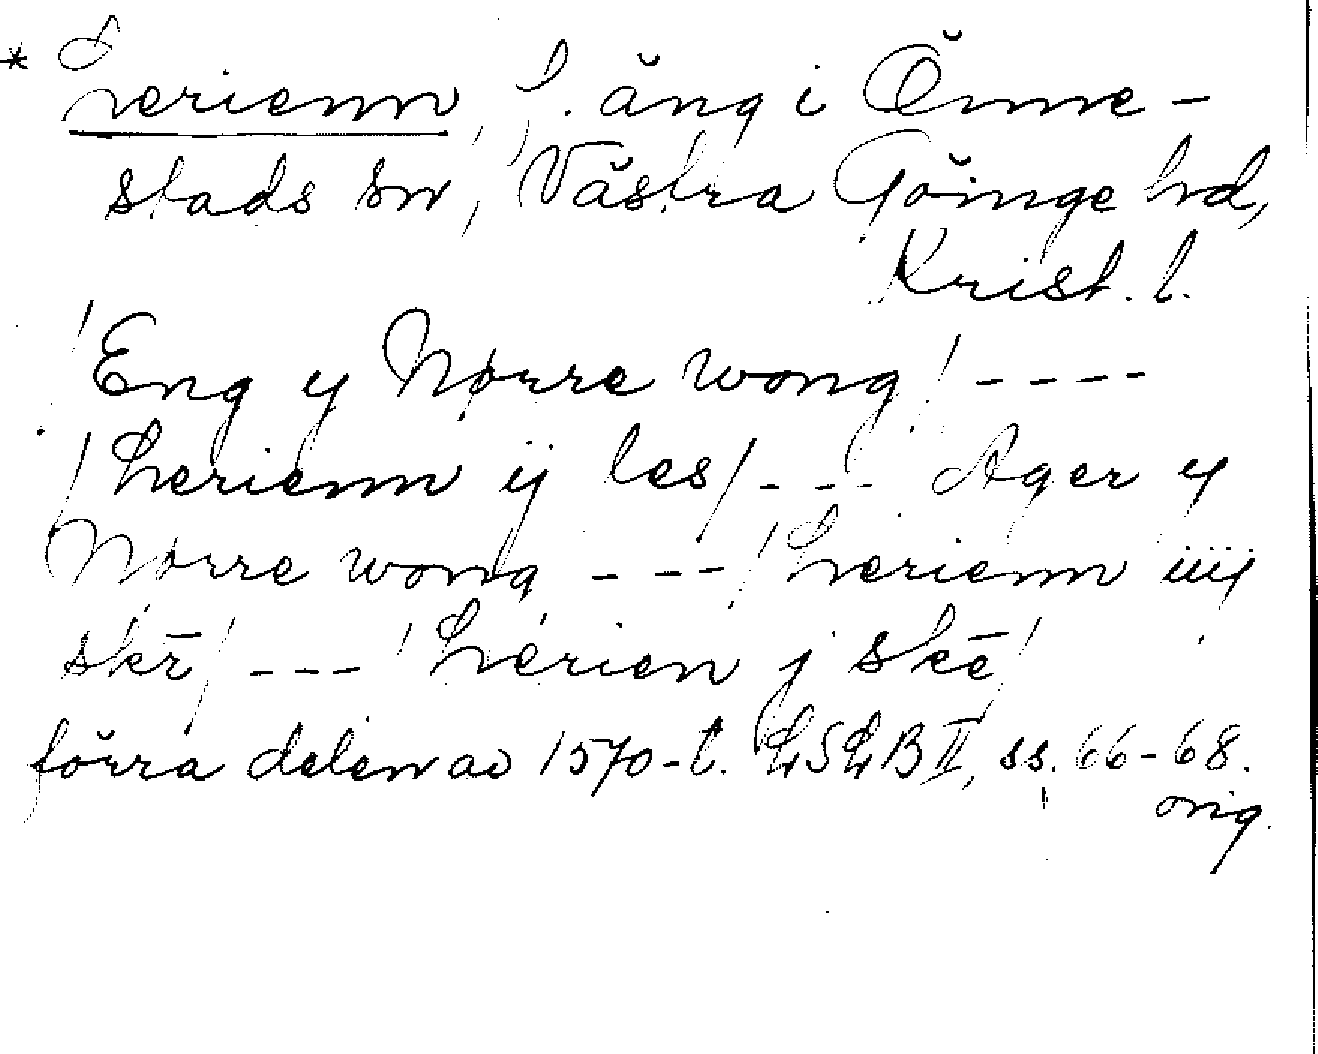 * Lerienn, f. äng i Önne-
stads sn, Västra Göinge hd,
Krist. l.
/Eng y Nørre wong/ ----
/Lerienn ij les/ --- Ager y
Nørre wong ---/Lerienn iiij
skē/ --- /Lerien j skē/
förra delen av 1570-t. LSLB II, ss. 66-68.
orig.